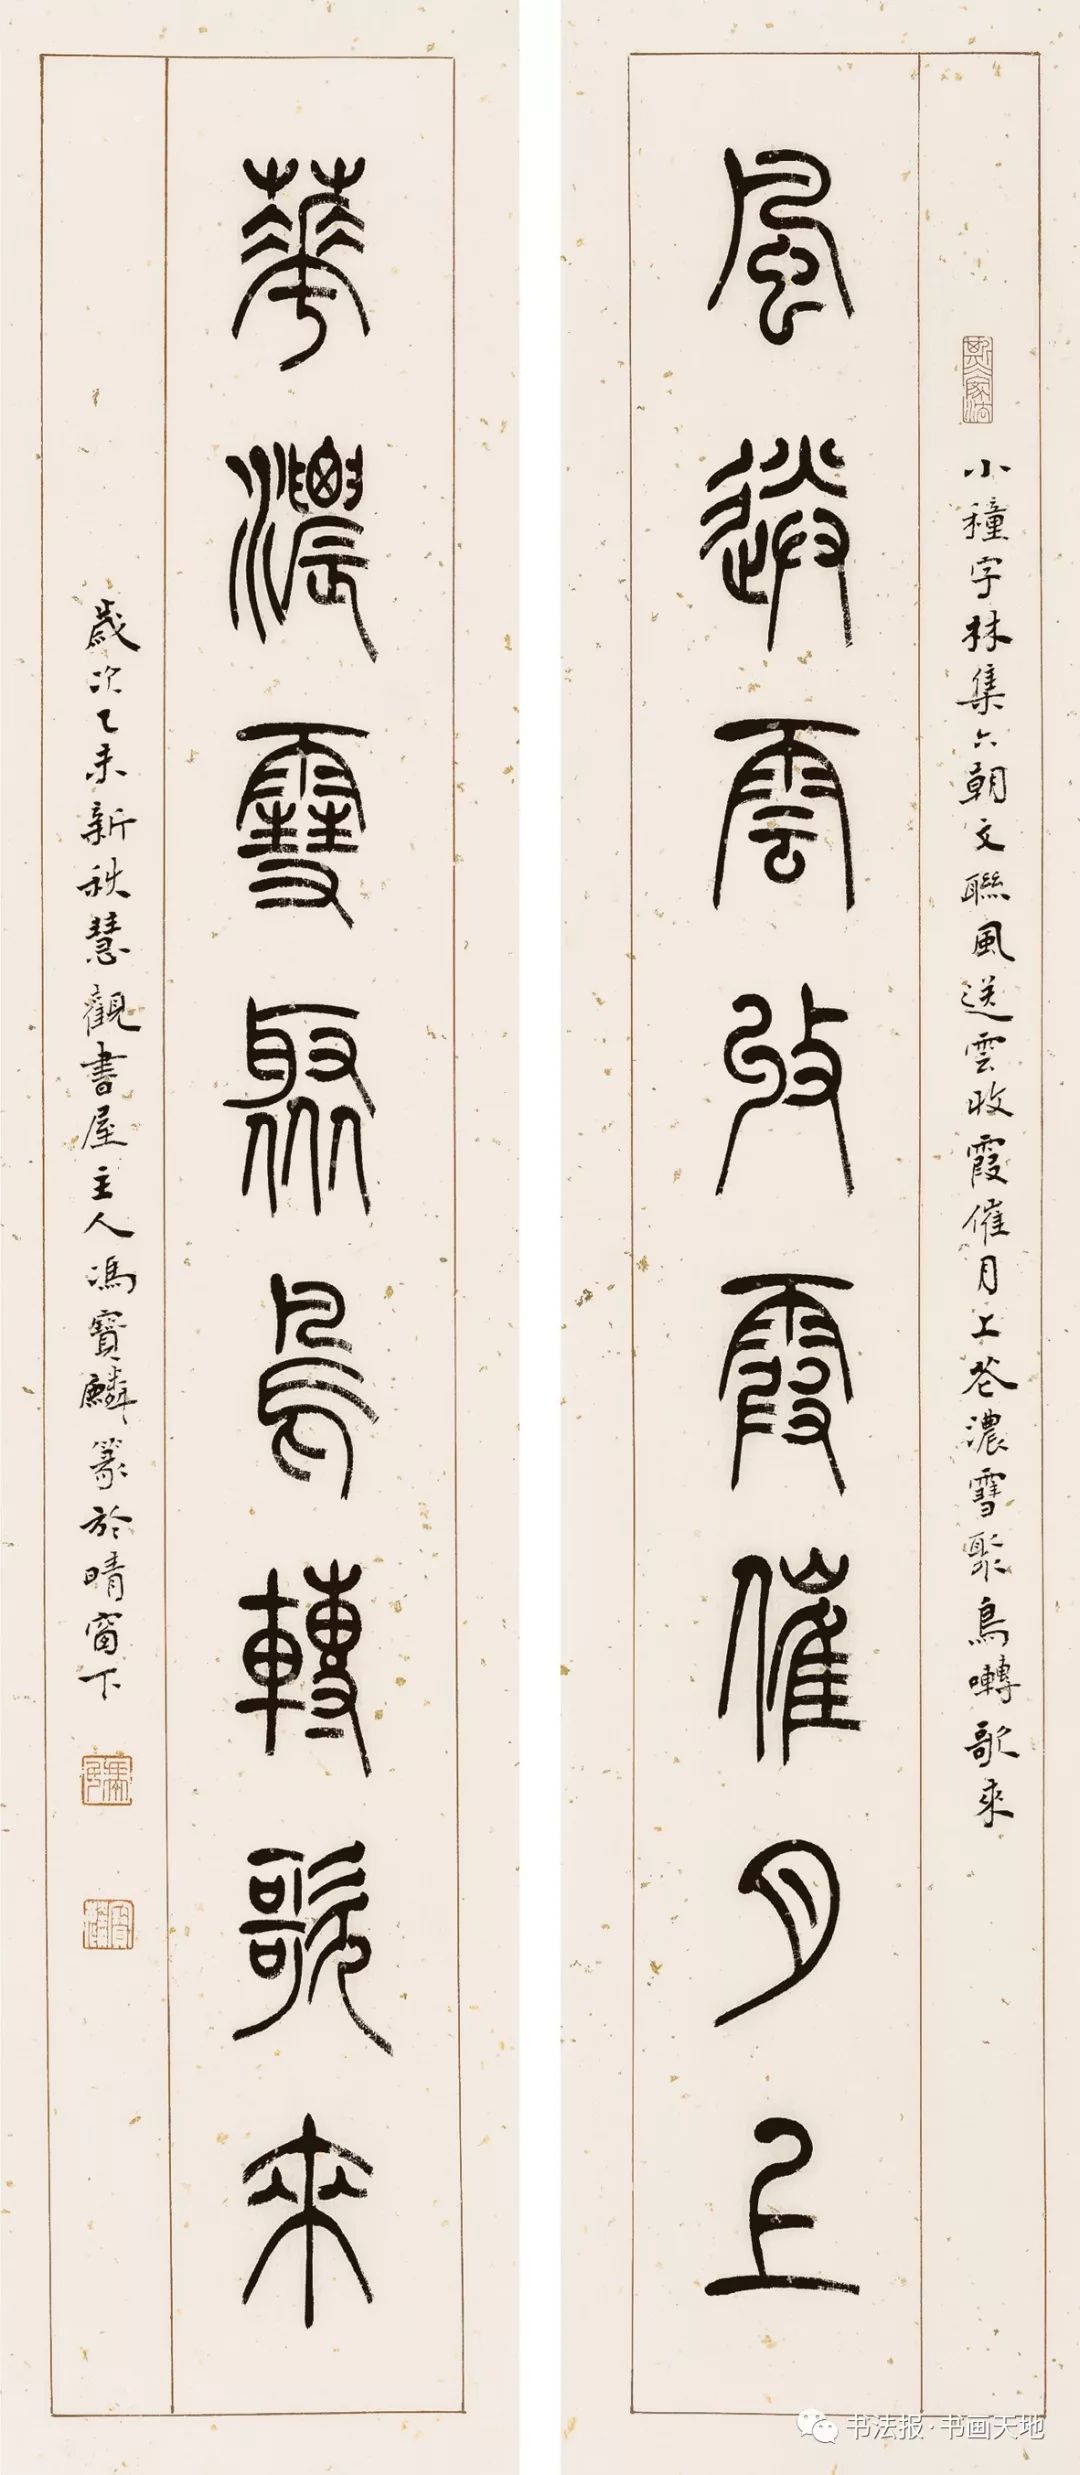 風送雲收霞催月上
小種字林集六朝文聯風送雲收霞催月上花濃雪聚鳥囀歌來
華濃雪聚鳥轉歌來
歲次乙未新秋慧觀書屋主人馮寶麟篆於晴窗下
书法报·书画天地